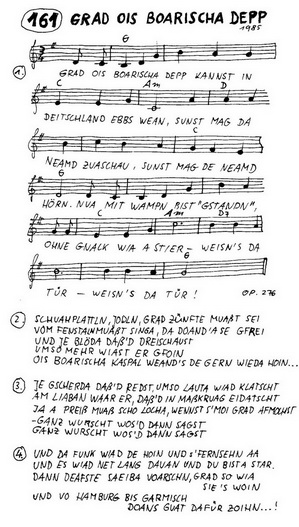 161 GRAD OIS BOARISCHA DEPP
1985
G
1. GRAD OIS BOARISCHA DEPP KANNST IN
C Am D
DEITSCHLAND EBBS WEAN, SUNST MAG DA
C
NEAMD ZUASCHAU, SUNST MAG DE NEAMD
G
HÖRN. NUA MIT WAMPN BIST "GSTANDN",
C Am D7
OHNE GNACK WIA A STIER - WEISN'S DA
G
TÜR - WEISN'S DA TÜR! OP. 276
2. SCHUAHPLATTLN, JODLN, GRAD ZÜNFTE MUAßT SEI
VOM FENSTALN MUAßT SINGA, DA DOAND'A SE GFREI
UND JE BLÖDA DAß'D DREISCHAUST
UMSO MEHR WIAST ER GFOIN
OIS BOARISCHA KASPAL WEAND'S DE GERN WIEDA HOIN...
3. JE GSCHERDA DAß'D REDST, UMSO LAUTA WIAD KLATSCHT
AM LIABAN WAAR ER, DAß'D IN MAßKRUAG EIDATSCHT
JA A PREIß MUAß SCHO LOCHA, WENNST S'MOI GRAD AFMOCHST
-GANZ WURSCHT WOS'D DANN SAGST
GANZ WURSCHT WOS'D DANN SAGST
4. UND DA FUNK WIAD DE HOIN UND S'FERNSEHN AA
UND ES WIAD NET LANG DAUAN UND DU BIST A STAR.
DANN DEAFSTE SAEIBA VOARSCHN, GRAD SO WIA
SIE'S WOIN
UND VO HAMBURG BIS GARMISCH
DOANS GUAT DAFÜR ZOIHN...!